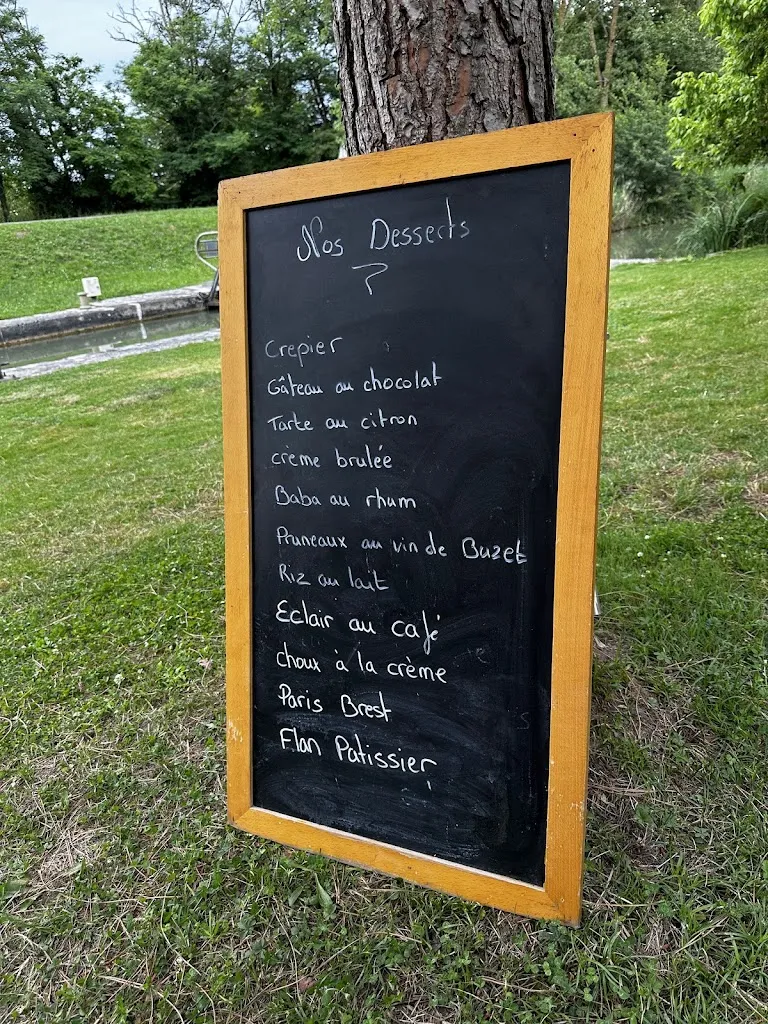 Nos Desserts
?
Crepier
Gâteau au chocolat
Tarte au citron
crème brulée
Baba au rhum
Pruneaux au vin de Buzet
Riz au lait
Eclair au café
choux à la crème
Paris Brest
Flan Patissier